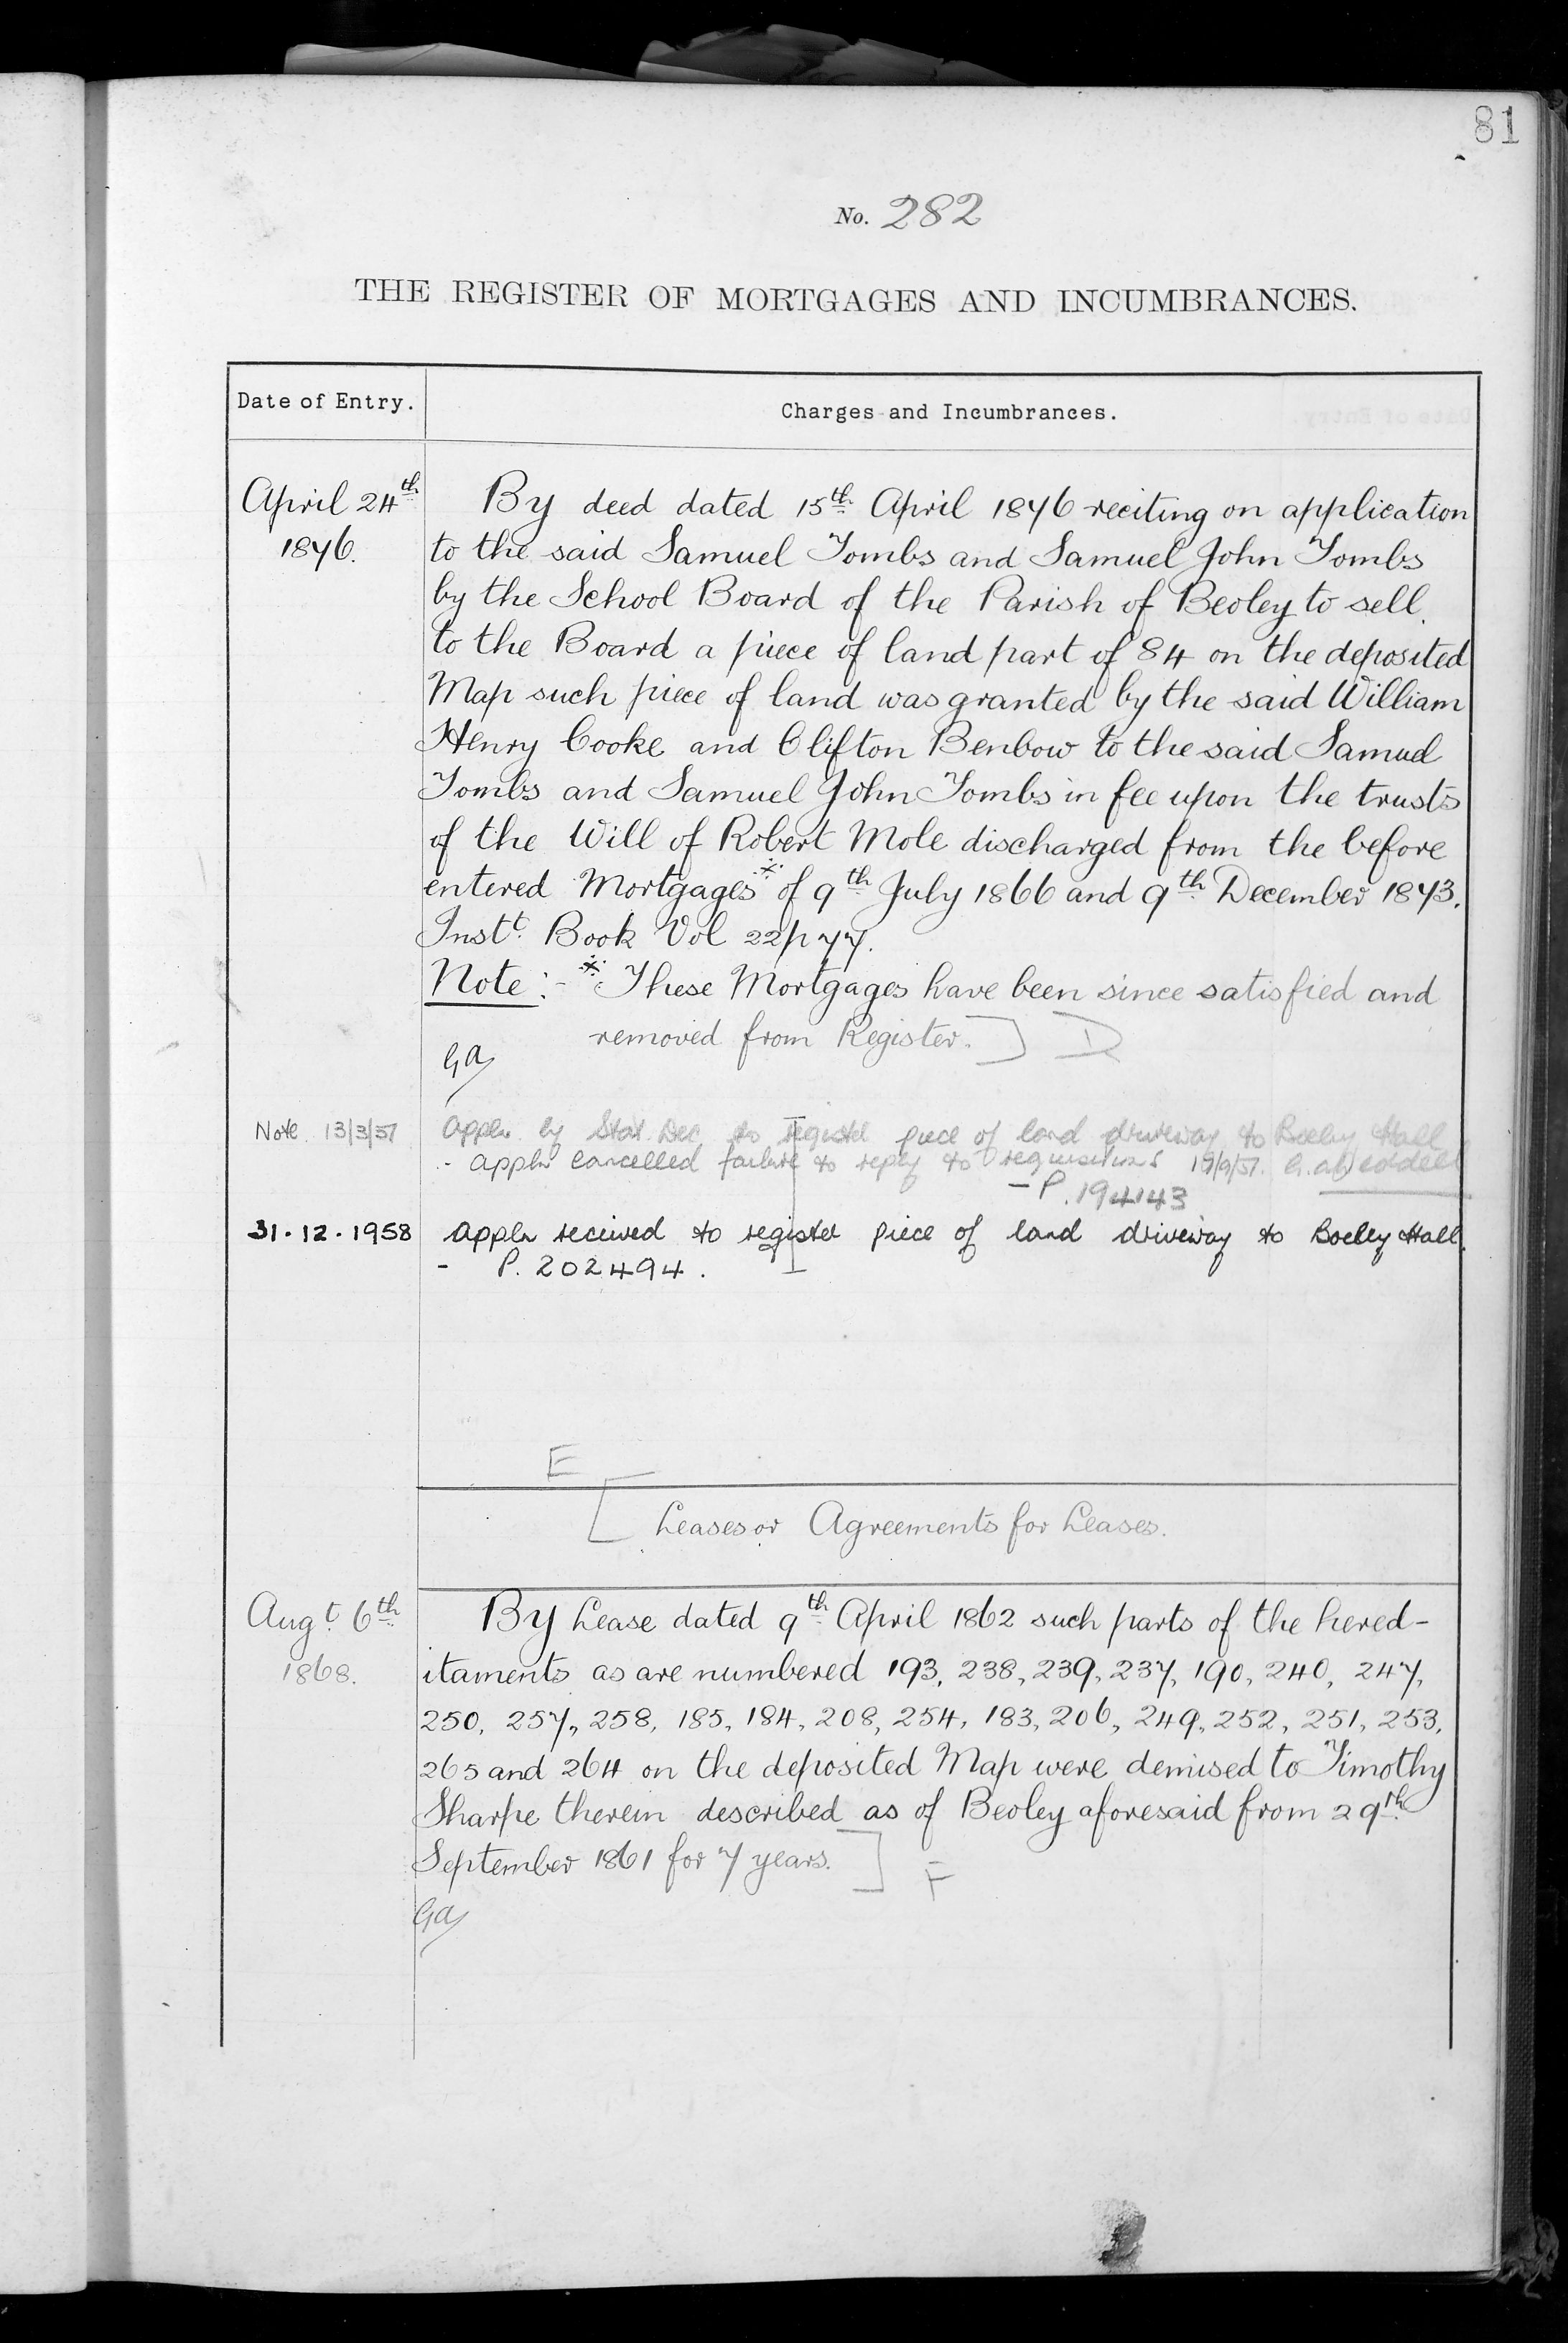 81
No. 282
THE REGISTER OF MORTGAGES AND INCUMBRANCES.
Date of Entry.
Charges and Incumbrances.
April 24th
1876.
By deed dated 15th April 1876 reciting on application
to the said Samuel Tombs and Samuel John Tombs
by the School Board of the Parish of Beoley to sell
to the Board a piece of land part of 84 on the deposited
Map such piece of land was granted by the said William
Henry Cooke and Clifton Benbow to the said Samuel
Tombs and Samuel John Tombs in fee upon the trusts
of the Will of Robert Mole discharged from the before
entered Mortgages * of 9th July 1866 and 9th December 1873.
Instt. Book Vol 22 p 77.
Note :- * These Mortgages have been since satisfied and
removed from Register. ] D
Ga
Note 13/3/57
Appln by Stat. Dec. to register piece of land driveway to Beoley Hall
- Appln cancelled failure to reply to requisitions 19/9/57.
- P. 194143
31.12.1958
Appln received to register piece of land driveway to Boeley Hall.
- P. 202494.
E
[ Leases or Agreements for Leases.
Augt. 6th
1868.
By Lease dated 9th April 1862 such parts of the hered-
itaments as are numbered 193, 238, 239, 237, 190, 240, 247,
250, 257, 258, 185, 184, 208, 254, 183, 206, 249, 252, 251, 253,
265 and 264 on the deposited Map were demised to Timothy
Sharpe therein described as of Beoley aforesaid from 29th
September 1861 for 7 years. ] F
Ga